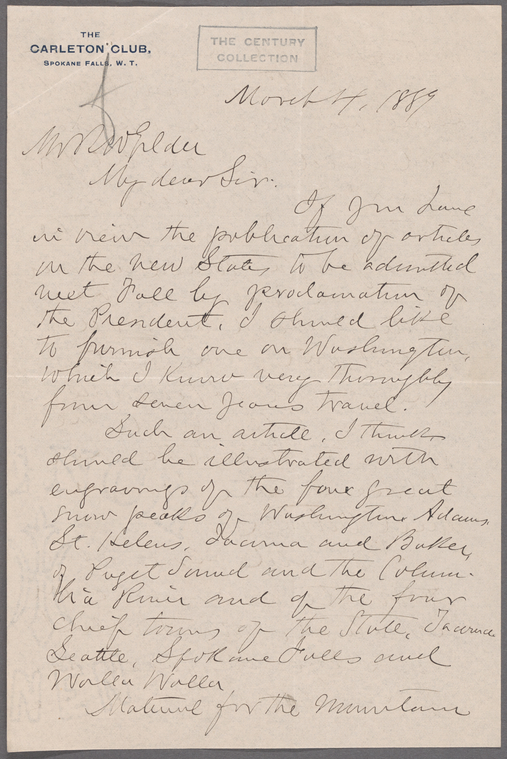 THE
CARLETON CLUB,
SPOKANE FALLS, W. T.
THE CENTURY
COLLECTION
March 4, 1889
Mr R W Gilder
My dear Sir:
If you have
in view the publication of articles
on the new States to be admitted
next Fall by proclamation of
the President, I should like
to furnish one on Washington,
which I know very thoroughly
from seven years travel.
Such an article, I think
should be illustrated with
engravings of the four great
snow peaks of Washington Adams,
St. Helens, Tacoma and Baker,
of Puget Sound and the Colum-
bia River and of the four
chief towns of the State, Tacoma
Seattle, Spokane Falls and
Walla Walla
Material for the Mountain